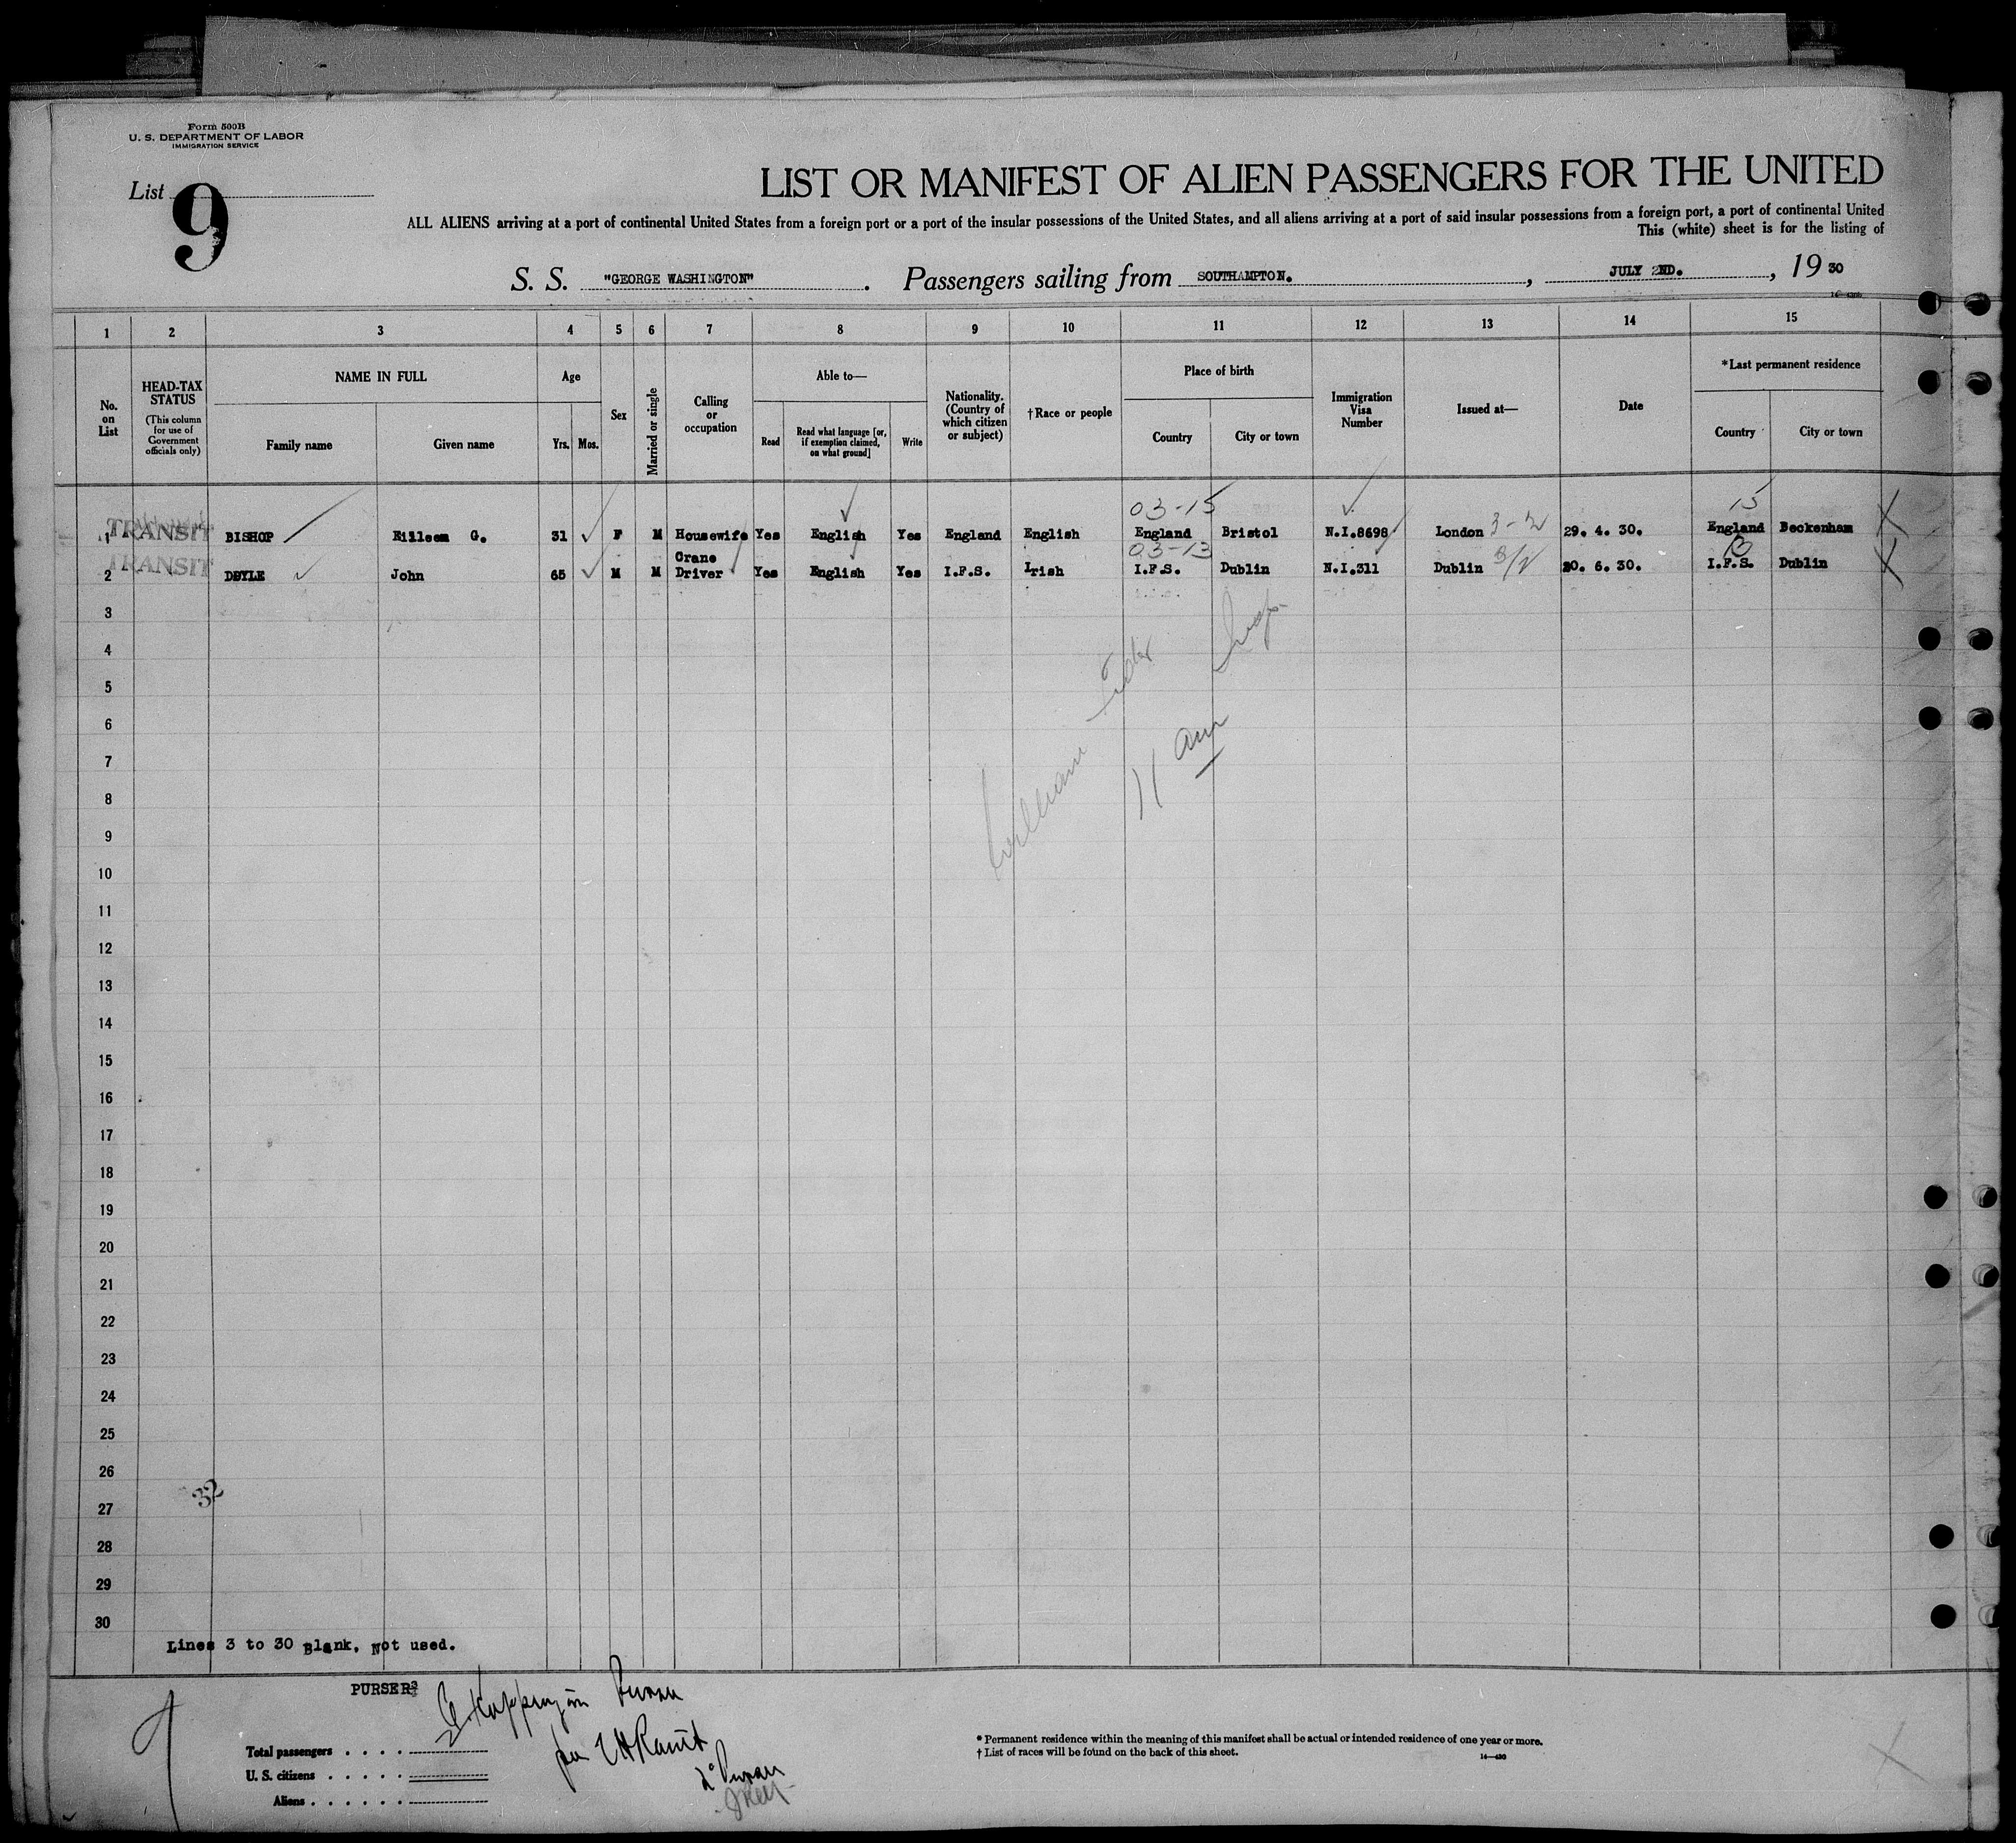 Form 500B
U. S. DEPARTMENT OF LABOR
IMMIGRATION SERVICE
List 9
LIST OR MANIFEST OF ALIEN PASSENGERS FOR THE UNITED
ALL ALIENS arriving at a port of continental United States from a foreign port or a port of the insular possessions of the United States, and all aliens arriving at a port of said insular possessions from a foreign port, a port of continental United
This (white) sheet is for the listing of
S. S. "GEORGE WASHINGTON" . Passengers sailing from SOUTHAMPTON. , JULY 2ND. , 19 30
1 2 3 4 5 6 7 8 9 10 11 12 13 14 15
No. on List
HEAD-TAX STATUS (This column for use of Government officials only)
NAME IN FULL
Family name Given name
Age
Yrs. Mos.
Sex
Married or single
Calling or occupation
Able to—
Read Read what language [or, if exemption claimed, on what ground] Write
Nationality. (Country of which citizen or subject)
†Race or people
Place of birth
Country City or town
Immigration Visa Number
Issued at—
Date
*Last permanent residence
Country City or town
03-15 15
1 TRANSIT BISHOP Eilleen G. 31 F M Housewife Yes English Yes England English England Bristol N.I.8698 London 3-2 29. 4. 30. England Beckenham
03-13 13
2 TRANSIT DOYLE John 65 M M Crane Driver Yes English Yes I.F.S. Irish I.F.S. Dublin N.I.311 Dublin 3/2 20. 6. 30. I.F.S. Dublin
3
4
5
6
7
8
9
10
11
12
13
14
15
16
17
18
19
20
21
22
23
24
25
26
27
28
29
30
William
11 am
32
Lines 3 to 30 Blank, Not used.
PURSER
Total passengers . . . .
U. S. citizens . . . . .
Aliens . . . . . .
* Permanent residence within the meaning of this manifest shall be actual or intended residence of one year or more.
† List of races will be found on the back of this sheet.
14—430